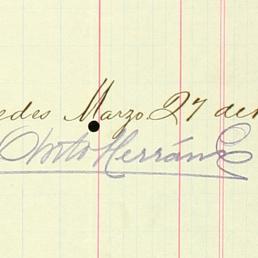 edes Marzo 27 de
Herrán